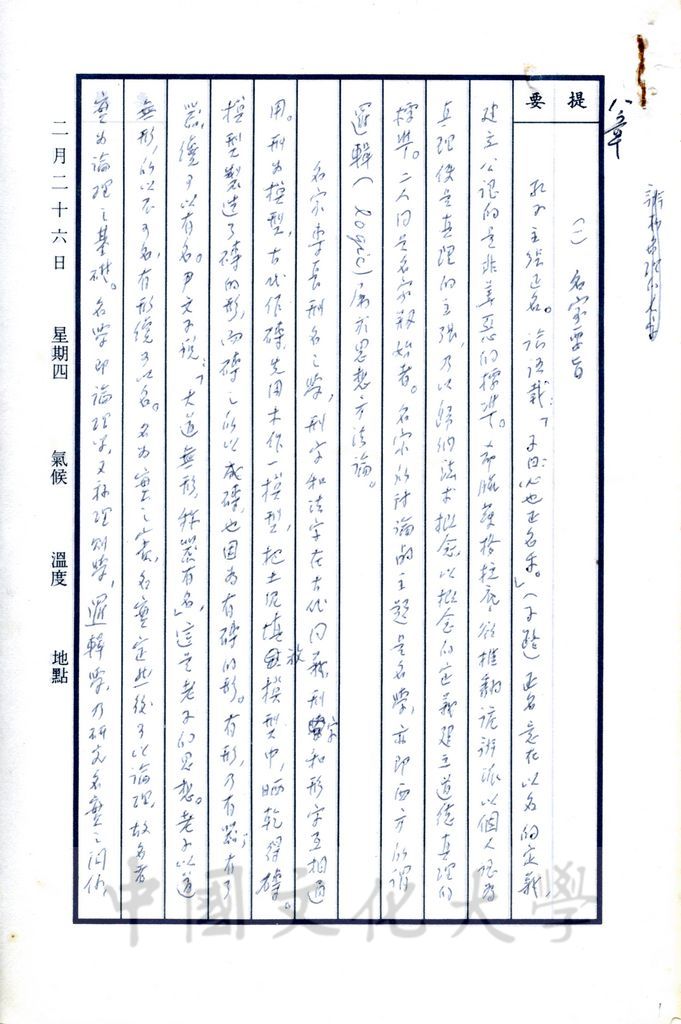 提要
(一) 名家要旨
孔子主張正名。論語載:「子曰:必也正名乎。」(子路)正名意在以名的定義
建立公認的是非善惡的標準。希臘蘇格拉底欲推翻詭辯派以個人認為
真理便是真理的主張,乃以歸納法求概念,以概念的定義建立道德真理的
標準。二人同是名家創始者。名家所討論的主題是名學,亦即西方所謂
邏輯(Logic)屬於思想方法論。
名家專長刑名之學,刑字和法字在古代同義,刑字和形字互相通
用。刑為模型,古代作磚,先用木作一模型,把土泥填放模型中,晒乾得磚。
模型製造了磚的形,而磚之所以成磚,也因為有磚的形。有形,乃有器;有了
器,纔可以有名。尹文子說:「大道無形,稱器有名」,這是老子的思想。老子以道
無形,所以不可名,有形纔可以名。名為實之賓,名實定然後可以論理,故名者
實為論理之基礎。名學即論理學,又稱理則學,邏輯學,乃研究名實之關係,
二月二十六日 星期四 氣候 溫度 地點
中國文化大學